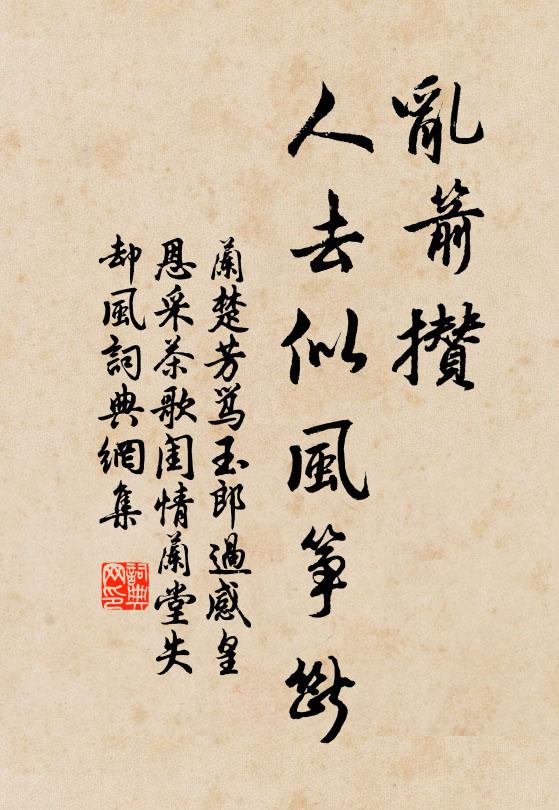 亂箭攢
人去似風箏斷
蘭楚芳罵玉郎過感皇
恩采茶歌閨情蘭堂失
却風詞典網集
詞典
网印